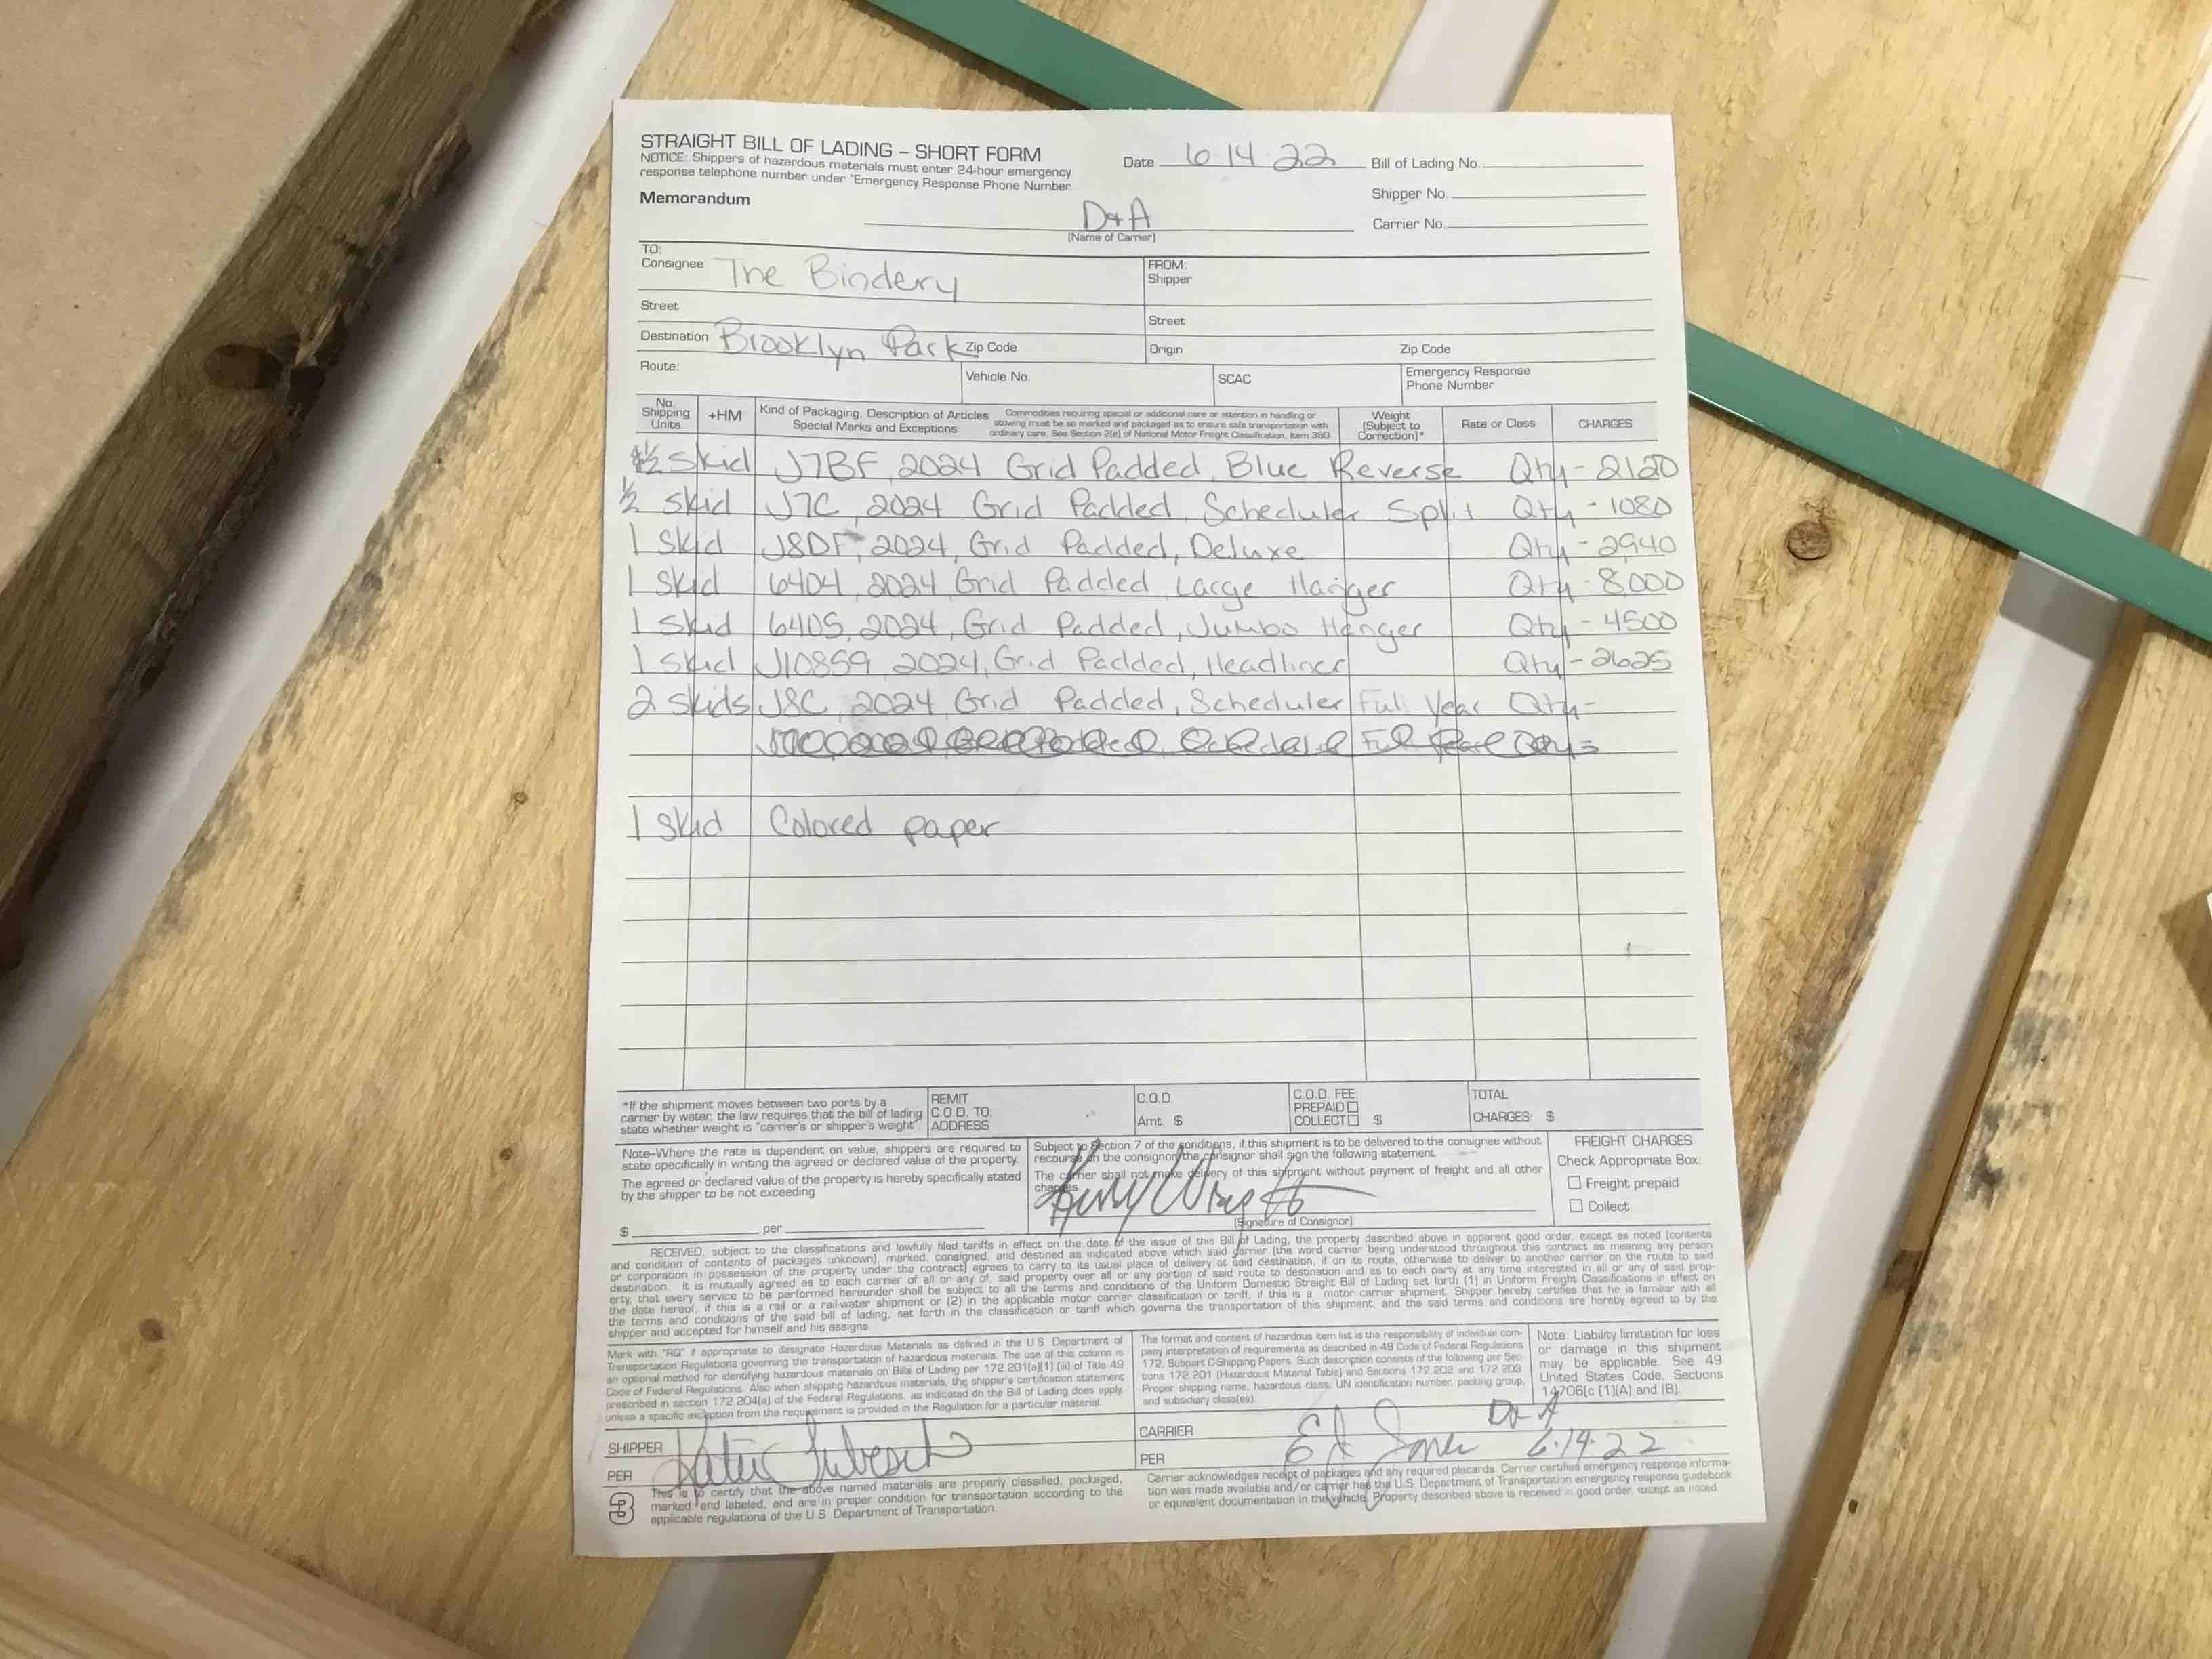 STRAIGHT BILL OF LADING – SHORT FORM
NOTICE: Shippers of hazardous materials must enter 24-hour emergency
response telephone number under "Emergency Response Phone Number.
Memorandum
Date 6-14-22 Bill of Lading No.
Shipper No.
Carrier No.
D+A
(Name of Carrier)
TO:
Consignee The Bindery
Street
Destination Brooklyn Park Zip Code
FROM:
Shipper
Street
Origin Zip Code
Route: Vehicle No. SCAC Emergency Response
Phone Number
No. Shipping Units
+HM
Kind of Packaging, Description of Articles
Special Marks and Exceptions
Commodities requiring special or additional care or attention in handling or
stowing must be so marked and packaged as to ensure safe transportation with
ordinary care. See Section 2(e) of National Motor Freight Classification, Item 360.
Weight
(Subject to
Correction)*
Rate or Class
CHARGES
½ skid J7BF, 2024 Grid Padded, Blue Reverse Qty - 2120
½ skid J7C, 2024 Grid Padded, Scheduler Split Qty - 1080
1 skid J8DF, 2024, Grid Padded, Deluxe Qty - 2940
1 skid 6404, 2024 Grid Padded Large Hanger Qty - 8,000
1 skid 6405, 2024, Grid Padded, Jumbo Hanger Qty - 4500
1 skid J10859, 2024, Grid Padded, Headliner Qty - 2625
2 skids J8C, 2024 Grid Padded, Scheduler Full Year Qty -
1 skid Colored paper
*If the shipment moves between two ports by a
carrier by water, the law requires that the bill of lading
state whether weight is "carrier's or shipper's weight".
REMIT
C.O.D. TO:
ADDRESS
C.O.D.
Amt. $
C.O.D. FEE:
PREPAID
COLLECT $
TOTAL
CHARGES: $
Note–Where the rate is dependent on value, shippers are required to
state specifically in writing the agreed or declared value of the property.
The agreed or declared value of the property is hereby specifically stated
by the shipper to be not exceeding
$ per
Subject to Section 7 of the conditions, if this shipment is to be delivered to the consignee without
recourse on the consignor, the consignor shall sign the following statement.
The carrier shall not make delivery of this shipment without payment of freight and all other
charges.
(Signature of Consignor)
FREIGHT CHARGES
Check Appropriate Box:
Freight prepaid
Collect
RECEIVED, subject to the classifications and lawfully filed tariffs in effect on the date of the issue of this Bill of Lading, the property described above in apparent good order, except as noted (contents
and condition of contents of packages unknown), marked, consigned, and destined as indicated above which said carrier (the word carrier being understood throughout this contract as meaning any person
or corporation in possession of the property under the contract) agrees to carry to its usual place of delivery at said destination, if on its route, otherwise to deliver to another carrier on the route to said
destination. It is mutually agreed as to each carrier of all or any of, said property over all or any portion of said route to destination and as to each party at any time interested in all or any of said prop-
erty, that every service to be performed hereunder shall be subject to all the terms and conditions of the Uniform Domestic Straight Bill of Lading set forth (1) in Uniform Freight Classifications in effect on
the date hereof, if this is a rail or a rail-water shipment or (2) in the applicable motor carrier classification or tariff, if this is a motor carrier shipment. Shipper hereby certifies that he is familiar with all
the terms and conditions of the said bill of lading, set forth in the classification or tariff which governs the transportation of this shipment, and the said terms and conditions are hereby agreed to by the
shipper and accepted for himself and his assigns.
Mark with "RQ" if appropriate to designate Hazardous Materials as defined in the U.S. Department of
Transportation Regulations governing the transportation of hazardous materials. The use of this column is
an optional method for identifying hazardous materials on Bills of Lading per 172.201(a)(1) (iii) of Title 49
Code of Federal Regulations. Also when shipping hazardous materials, the shipper's certification statement
prescribed in section 172.204(a) of the Federal Regulations, as indicated on the Bill of Lading does apply,
unless a specific exception from the requirement is provided in the Regulation for a particular material.
The format and content of hazardous item list is the responsibility of individual com-
pany interpretation of requirements as described in 49 Code of Federal Regulations
172, Subpart C-Shipping Papers. Such description consists of the following per Sec-
tions 172.201 (Hazardous Material Table) and Sections 172.202 and 172.203.
Proper shipping name, hazardous class, UN identification number, packing group,
and subsidiary class(es).
Note: Liability limitation for loss
or damage in this shipment
may be applicable. See 49
United States Code, Sections
14706(c (1)(A) and (B).
SHIPPER
PER
CARRIER D+A
PER 6-14-22
This is to certify that the above named materials are properly classified, packaged,
marked, and labeled, and are in proper condition for transportation according to the
applicable regulations of the U.S. Department of Transportation.
Carrier acknowledges receipt of packages and any required placards. Carrier certifies emergency response informa-
tion was made available and/or carrier has the U.S. Department of Transportation emergency response guidebook
or equivalent documentation in the vehicle. Property described above is received in good order, except as noted.